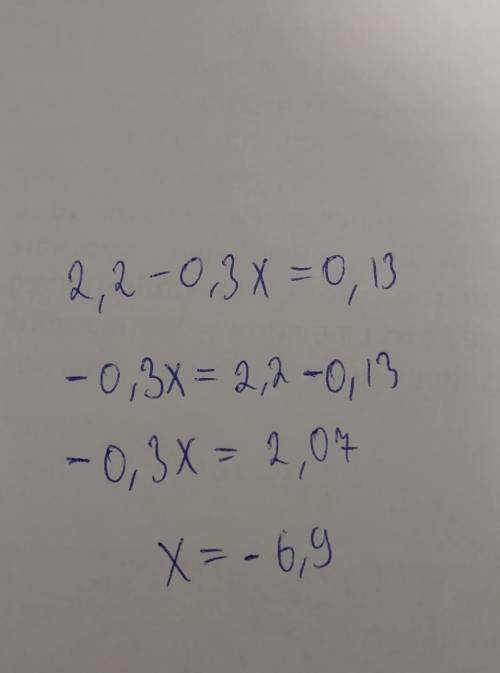 2,2 - 0,3x = 0,13
- 0,3x = 2,2 - 0,13
- 0,3x = 2,07
x = - 6,9